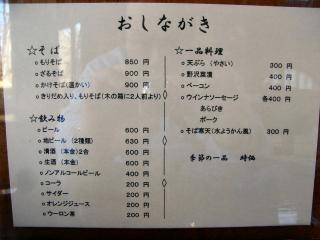 おしながき
☆そば
○もりそば 850 円
○ざるそば 900 円
○かけそば(温かい) 900 円
○きりだめ入り、もりそば(木の箱に2人前より)
☆飲み物
○ビール 600 円
○地ビール (2種類) 630 円
○清酒 (本金)2合 600 円
○生酒 (本金) 600 円
○ノンアルコールビール 400 円
○コーラ 200 円
○サイダー 200 円
○オレンジジュース 200 円
○ウーロン茶 200 円
☆一品料理
○天ぷら (やさい) 300 円
○野沢菜漬 400 円
○ベーコン 400 円
○ウインナソーセージ 各400 円
あらびき
ポーク
○そば寒天(水ようかん風) 300 円
季節の一品 時価